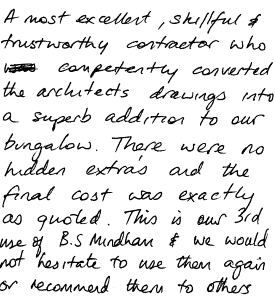 A most excellent, skillful &
trustworthy contractor who
competently converted
the architects drawings into
a superb addition to our
bungalow. There were no
hidden extra's and the
final cost was exactly
as quoted. This is our 3rd
use of B.S Mundham & we would
not hesitate to use them again
or recommend them to others